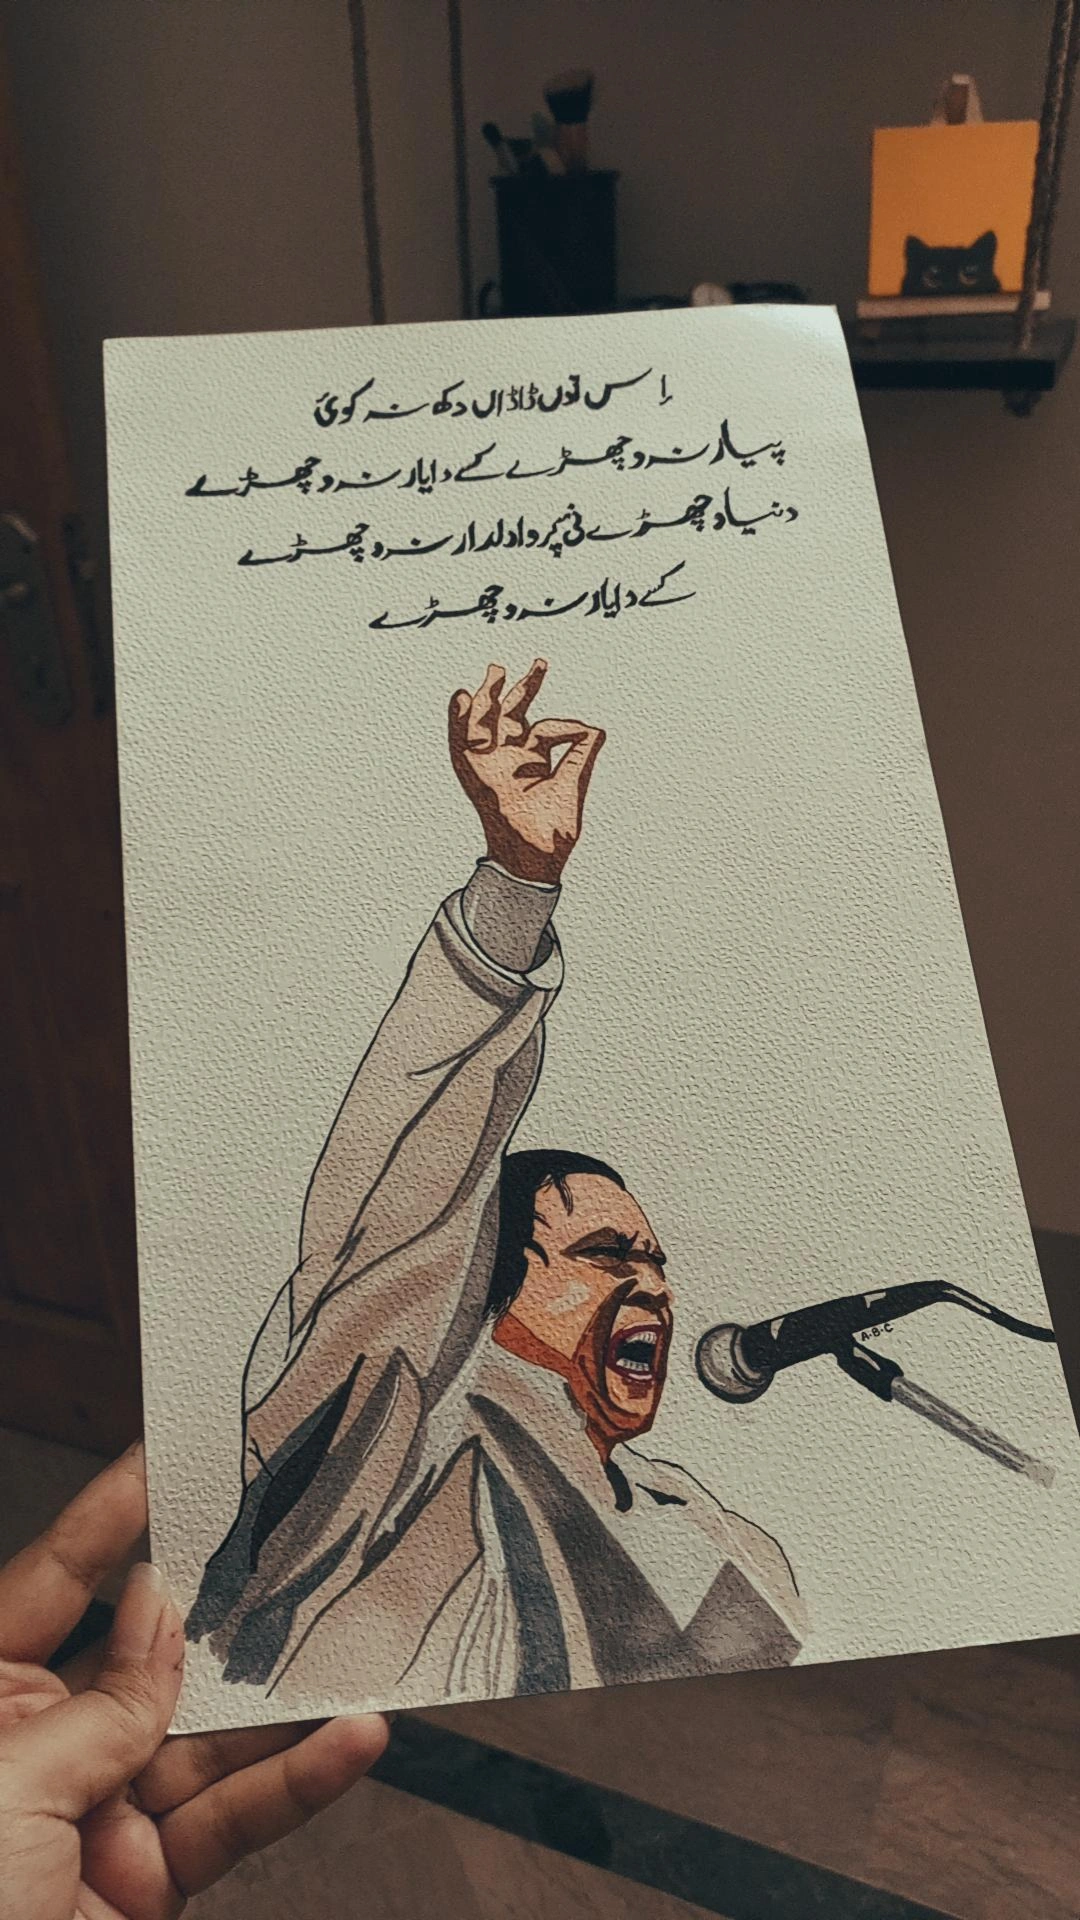 اِس توں ڈاڈاں دکھ نہ کوئ
پیار نہ وچھڑے کسے دا یار نہ وچھڑے
دنیا وچھڑے نئی پرواہ دلدار نہ وچھڑے
کسے دا یار نہ وچھڑے
A·B·C